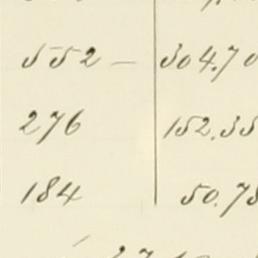 552 — 304.70
276 152.35
184 50.78